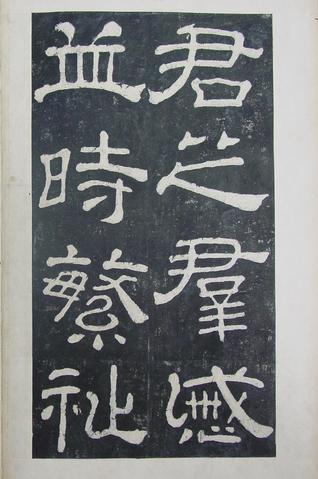 君之羣慼
並時繁祉